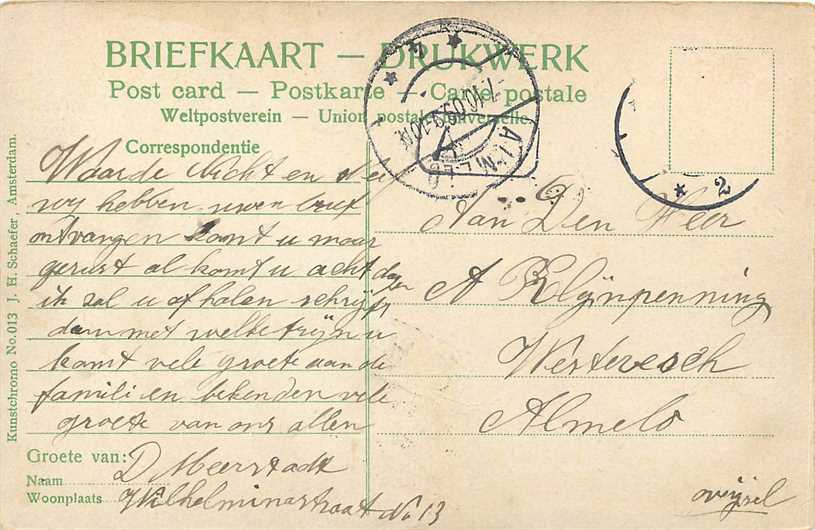 BRIEFKAART — DRUKWERK
Post card — Postkarte — Carte postale
Weltpostverein — Union postale universelle
Correspondentie
Waarde Nicht en
wij hebben uwen brief
ontvangen komt u maar
gerust al komt u acht dagen
ik zal u afhalen schrijft
dan met welke trijn u
komt vele groete aan de
famili en bekenden vele
groete van ons allen
Groete van: D Meerstadt
Naam
Woonplaats Wilhelminastraat No 13
Aan Den Heer
A Klijnpenning
Westeresch
Almelo
overijsel
ALMELO
7.10.09.9-10N
2
Kunstchromo No. 013 J. H. Schaefer, Amsterdam.